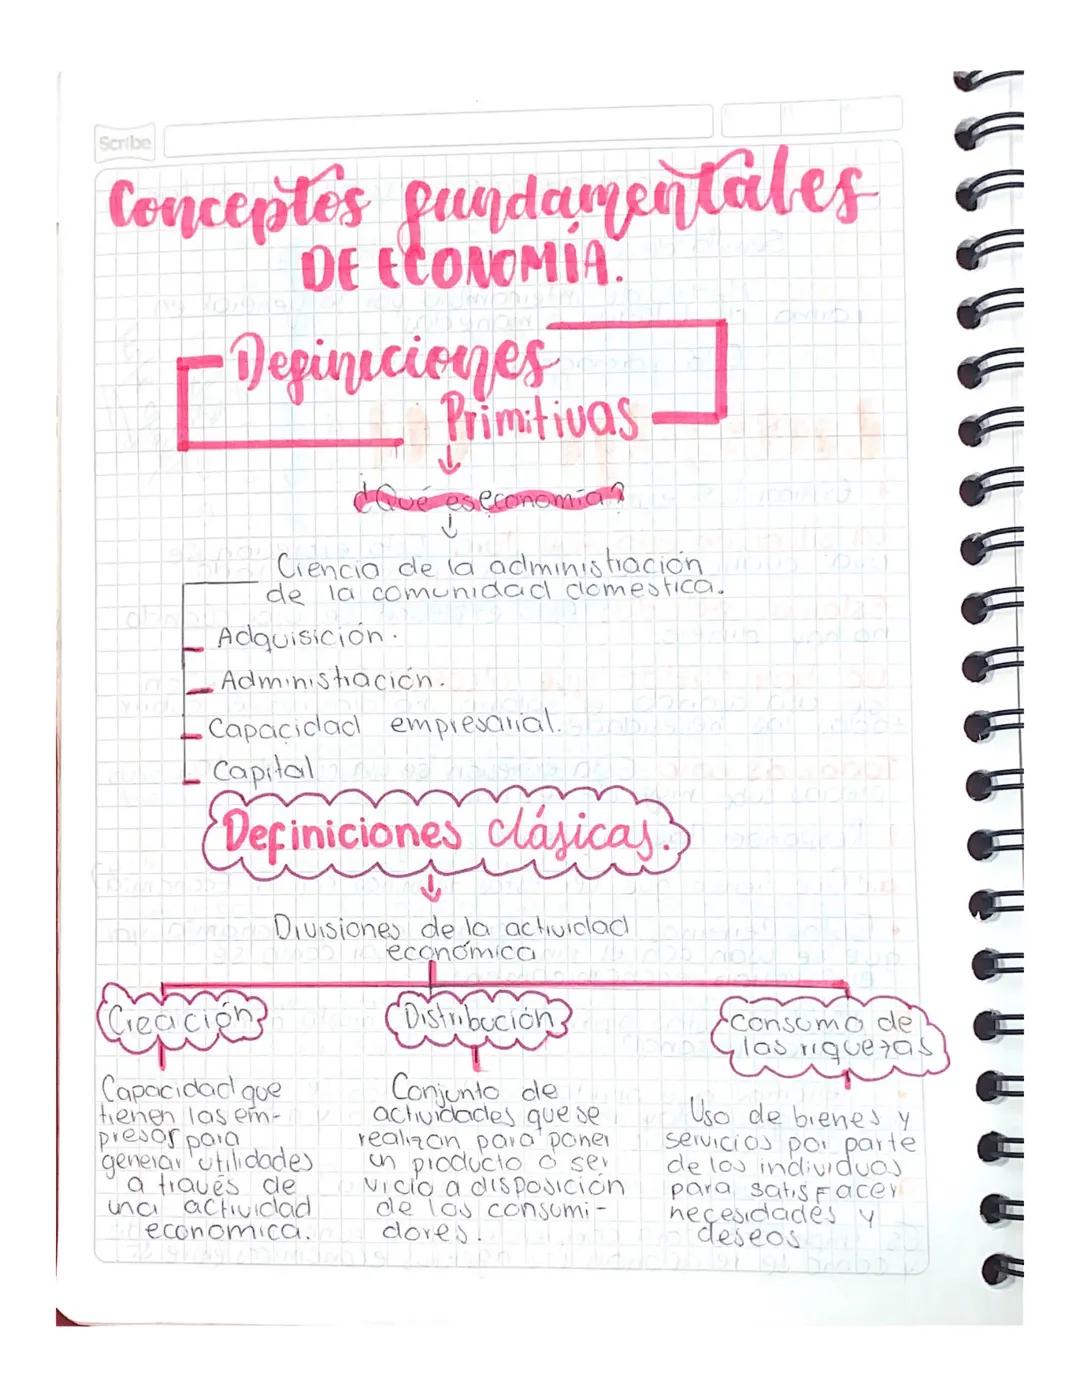 Scribe
Conceptos fundamentales
DE ECONOMÍA.
Definiciones
Primitivas
¿Qué es economía?
Ciencia de la administración
de la comunidad domestica.
Adquisición.
Administración.
Capacidad empresarial.
Capital
Definiciones clásicas.
Divisiones de la actividad
económica
Creación
Distribución
Consumo de
las riquezas
Capacidad que
tienen las em-
presas para
generar utilidades
a través de
una actividad
economica.
Conjunto de
actividades que se
realizan para poner
un producto o ser
vicio a disposición
de los consumi-
dores.
Uso de bienes y
servicios por parte
de los individuos
para satisfacer
necesidades y
deseos